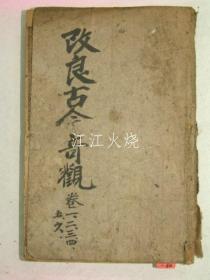 改良古今奇觀
卷一二三四
五六
江江火烧